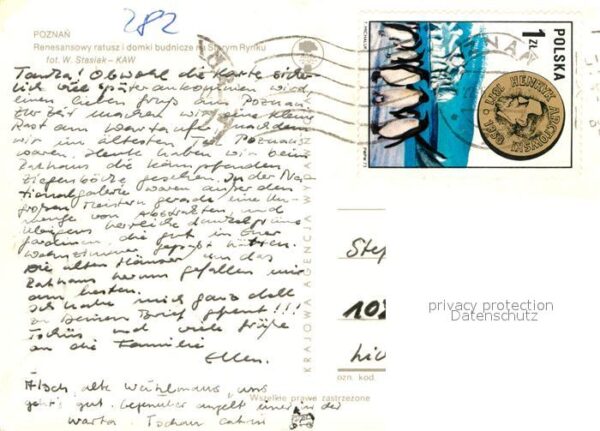 282
POZNAŃ
Renesansowy ratusz i domki budnicze na Starym Rynku
fot. W. Stasiak — KAW
Obwohl die Karte sicher-
lich viel später ankommen wird,
einen lieben Gruß aus Poznań.
Zur Zeit machen wir eine kleine
Rast am Wartaufer nachdem
wir im ältesten Teil Poznańs
waren. Heute haben wir beim
Rathaus die kämpfenden
Ziegenböcke gesehen. In der Na-
tionalgalerie waren außer den
großen Meistern gerade eine Un-
menge von Abstrakten und
übrigens herrliche dunkelgrüne
Gardinen, die gut in Euer
Wohnzimmer gepaßt hätten.
Die alten Häuser um das
Rathaus herum gefallen mir
am besten.
Ich habe mich ganz doll
zu Deinem Brief gefreut!!!
Tschüs und viele Grüße
an die Familie
Ellen.
alte Wühlmaus, uns
geht's gut. Gegenüber angelt einer in der
Warta.
KRAJOWA AGENCJA WY
Wszelkie prawa zastrzeżone
POZNAŃ
1 ZŁ
POLSKA
HENRYK ARCTOWSKI
1871
1958
PWPW 73
Step
102
ozn. kod.
privacy protection
Datenschutz